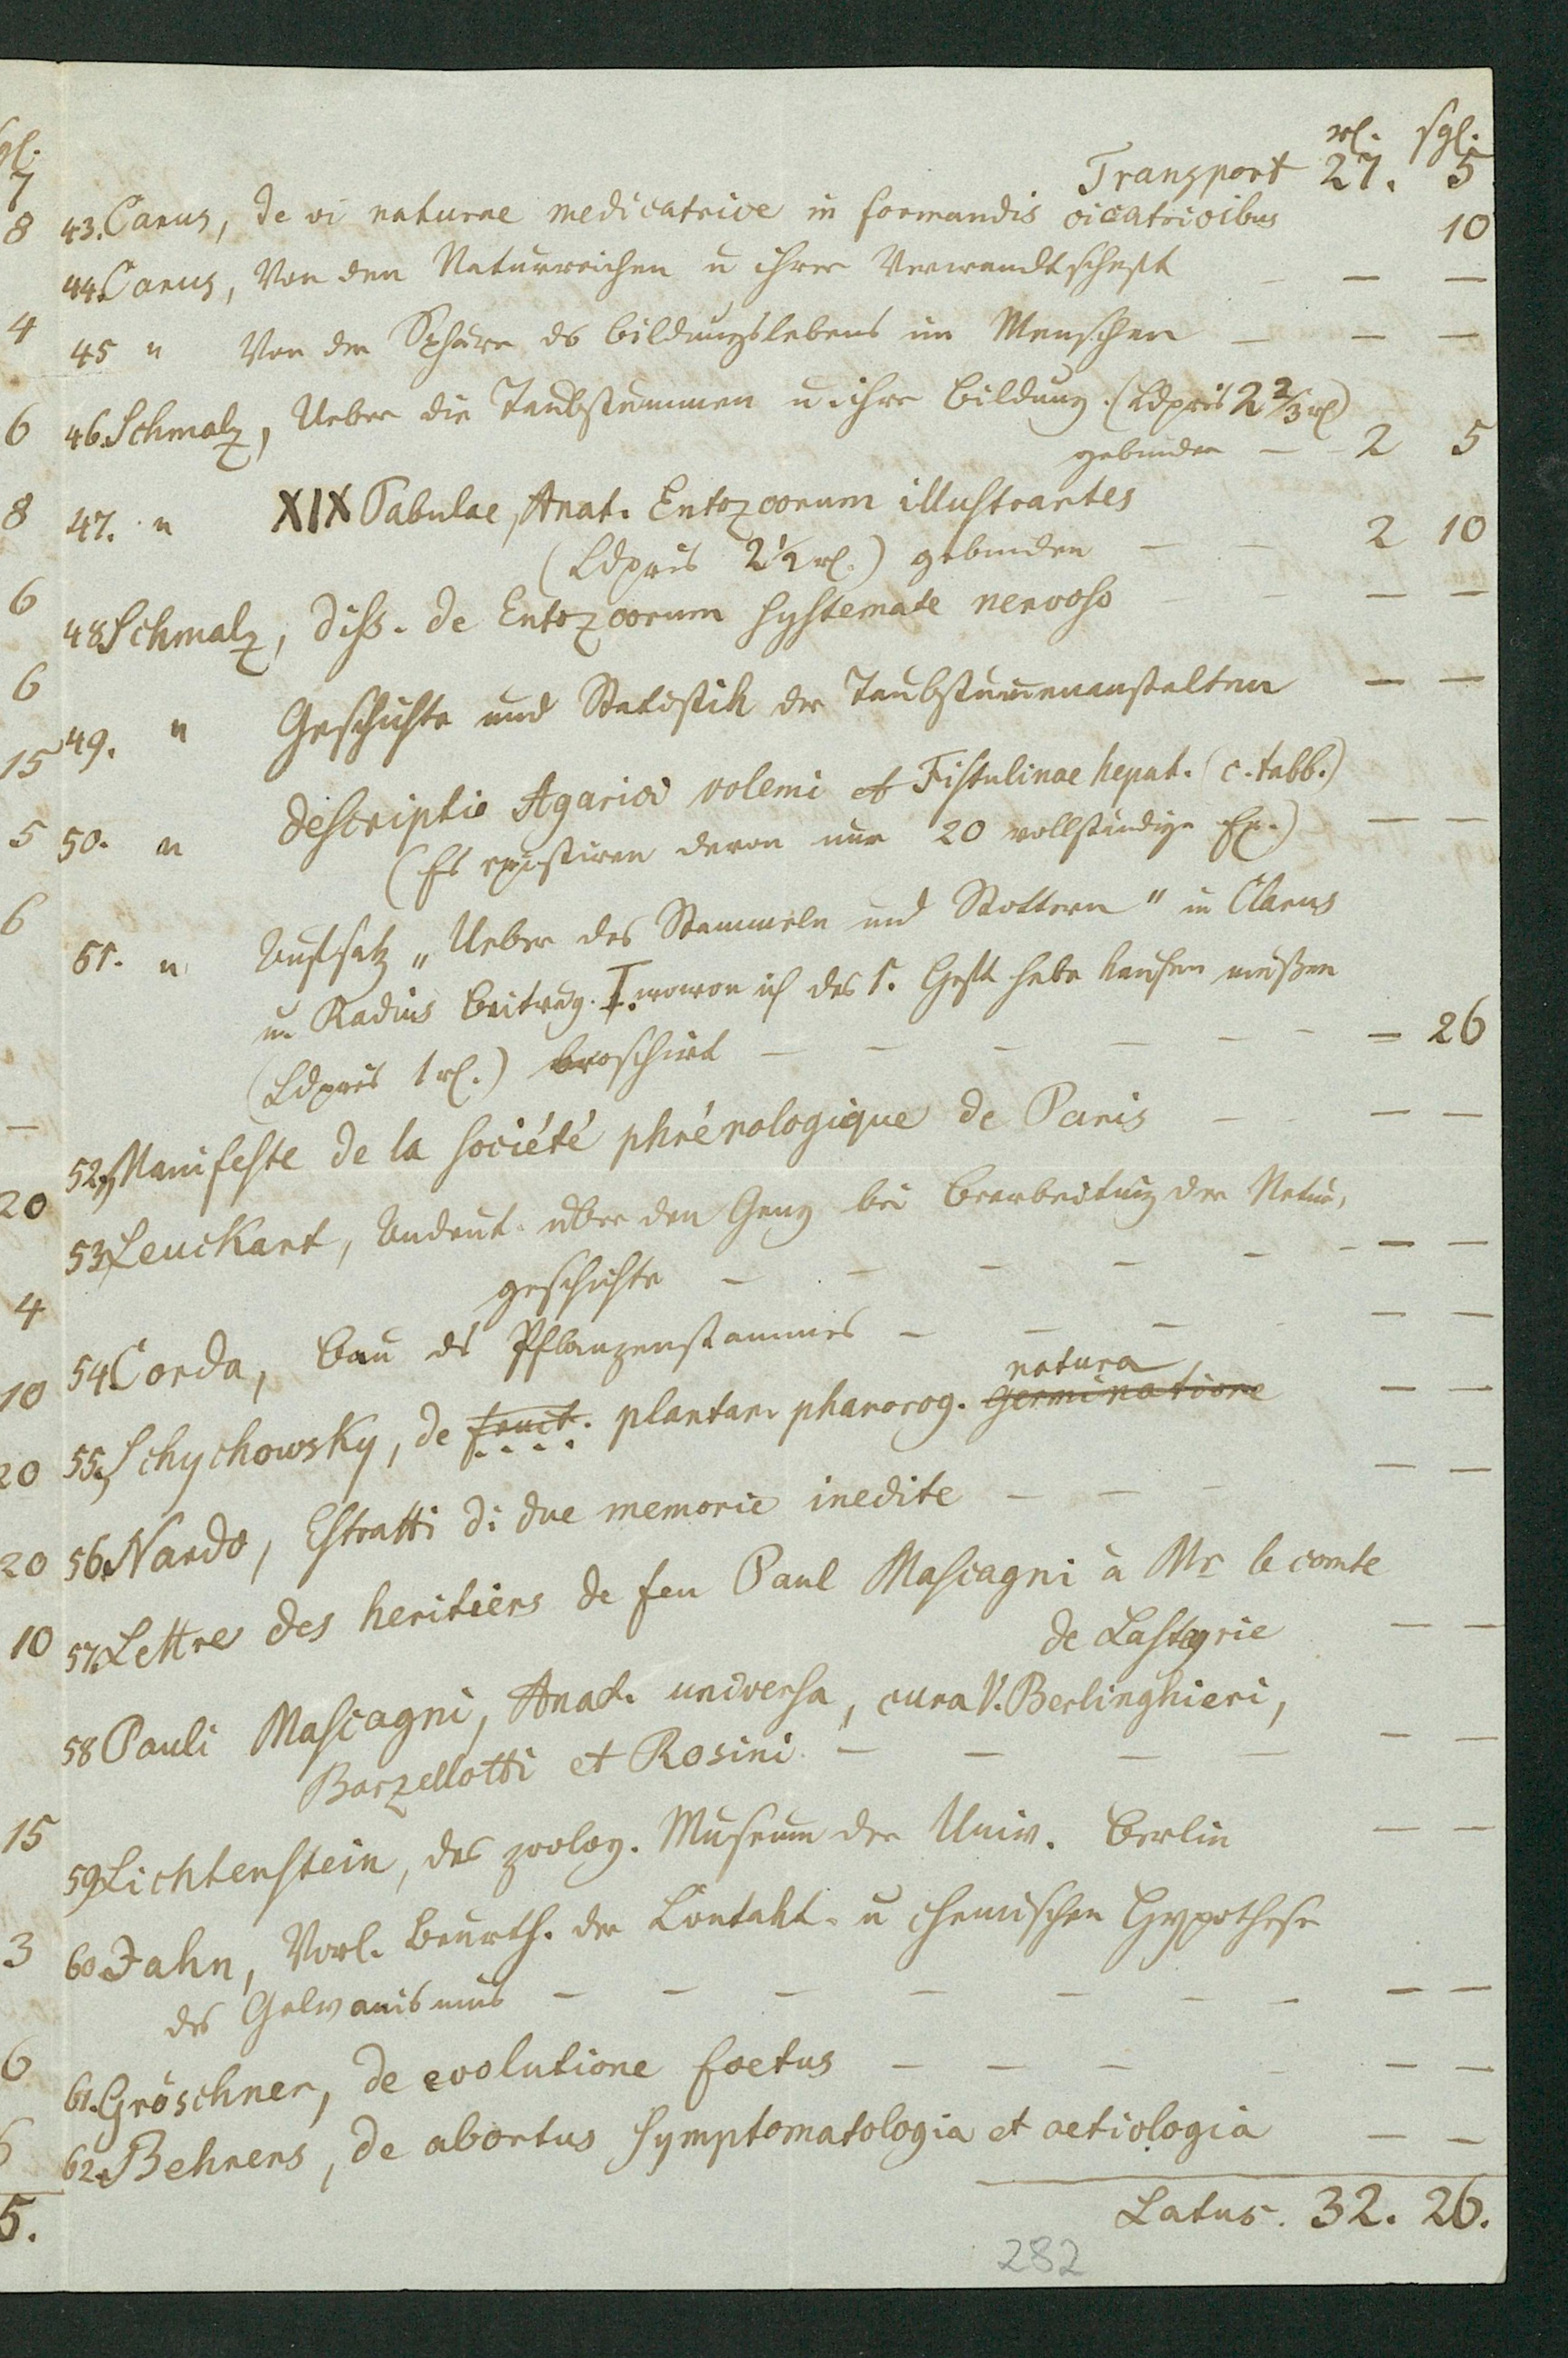 rl. sgl.
Transport 27. 5
43. Carus, de vi naturae medicatrice in formandis cicatricibus 10
44. Carus, Von den Naturreichen u ihrer Verwandtschaft — — —
45 " Von der Sphäre ds Bildungslebens im Menschen — — —
46. Schmalz, Ueber die Taubstummen u ihre Bildung. (Ldpreis 2 2/3 rl)
gebunden — — 2 5
47. " XIX Tabulae, Anat. Entozoorum illustrantes
(Ldpreis 2 1/2 rl.) gebunden — — 2 10
48 Schmalz, diss. de Entozoorum systemate nervoso — — — —
49. " Geschichte und Statistik der Taubstum̅enanstalten — —
50. " descriptio Agarici volemi et Fistulinae hepat. (c. tabb.)
(Es existiren davon nur 20 vollständige Ex.) — —
51. " Aufsatz „Ueber das Stammeln und Stottern" in Clarus
u. Radius Beiträg. I. wovon ich das 1. Heft habe kaufen müßen
(Ldpreis 1 rl.) broschirt — — — — — — 26
52. Manifeste de la société phrénologique de Paris — — —
53. Leuckart, Andeut. über den Gang bei Bearbeitung der Natur,
geschichte — — — — — — — —
54. Corda, Bau des Pflanzenstammes — — — — —
natura
55. Schychowsky, de fruct. plantar. phanerog. germinatione — —
56. Nardo, Estratti di due memorie inedite — — — — —
57. Lettre des heritiers de feu Paul Mascagni à Mr le comte
de Lasteyrie — —
58 Pauli Mascagni, Anat. universa, cura V. Berlinghieri,
Barzellotti et Rosini. — — — — — —
59. Lichtenstein, das zoolog. Museum der Univ. Berlin — —
60. Jahn, Vorl. Beurth. der Contakt- u chemischen Hypothese
des Galvanismus — — — — — — — — —
61. Gröschner, de evolutione foetus — — — — — —
62. Behrens, de abortus symptomatologia et aetiologia — —
Latus. 32. 26.
282
sgl.
7
8
4
6
8
6
6
15
5
6
—
20
4
10
20
20
10
15
3
6
5.